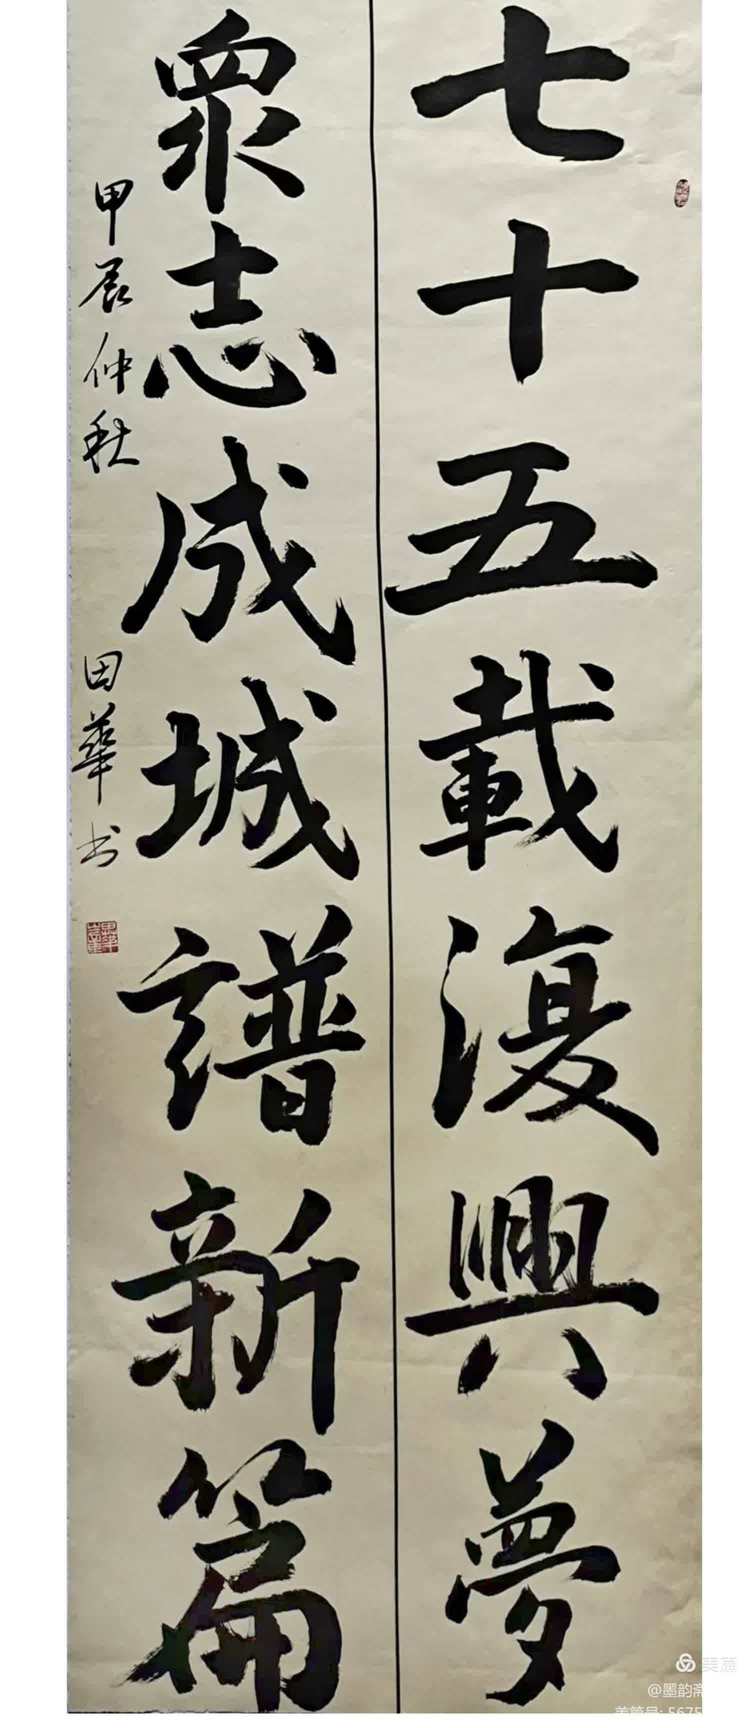 七十五載復興夢
衆志成城譜新篇
甲辰仲秋
田華书
美篇
@墨韵斋
美篇号: 5675